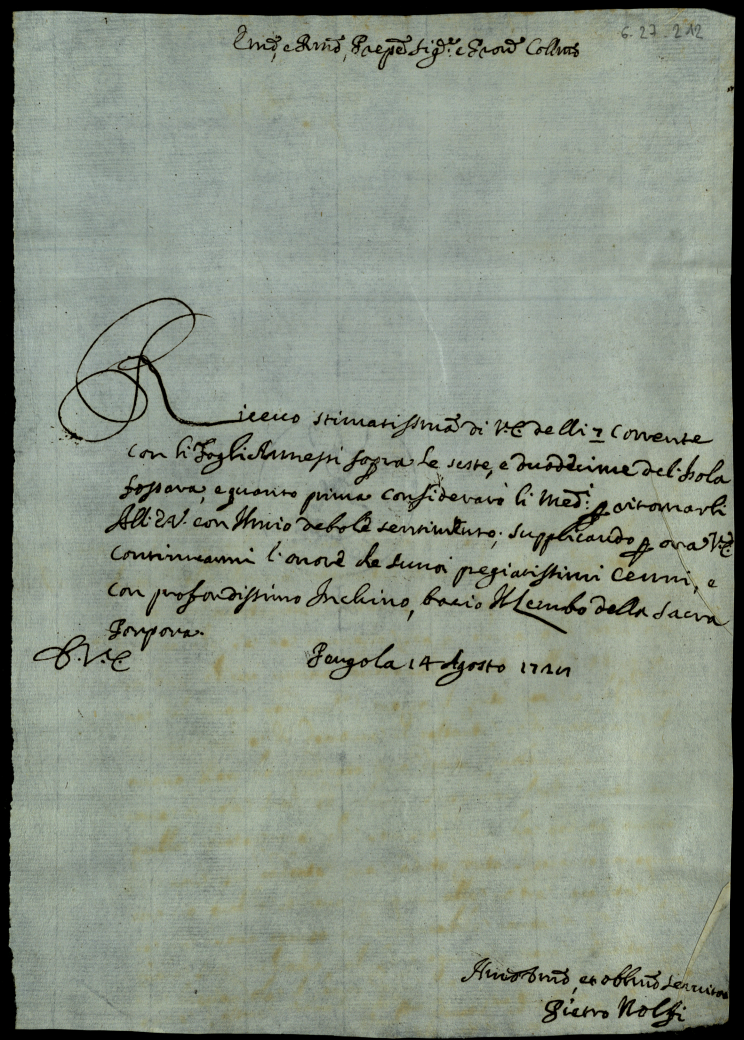 6.27.212
Emõ, e Rmõ, Prepẽ Sig.r e Pronẽ Collmo
Riceuo stimatissmã di V.E. delli 7 Corrente
con li Fogli Annessi sopra le seste, e duodecime del Isola
Fossara, e quanto prima considerarò li med.i p ritornarli
All' E.V. con Il mio debole sentimento; supplicando p ora V.E.
continuarmi l'onore de suoi pregiatissimi Cenni, e
con profondissimo Inchino, bacio Il Lembo della Sacra
Porpora.
D.V.E.
Pergola 14 Agosto
Humo Deumõ, et obblmõ Seruitore
Pietro Nolfi